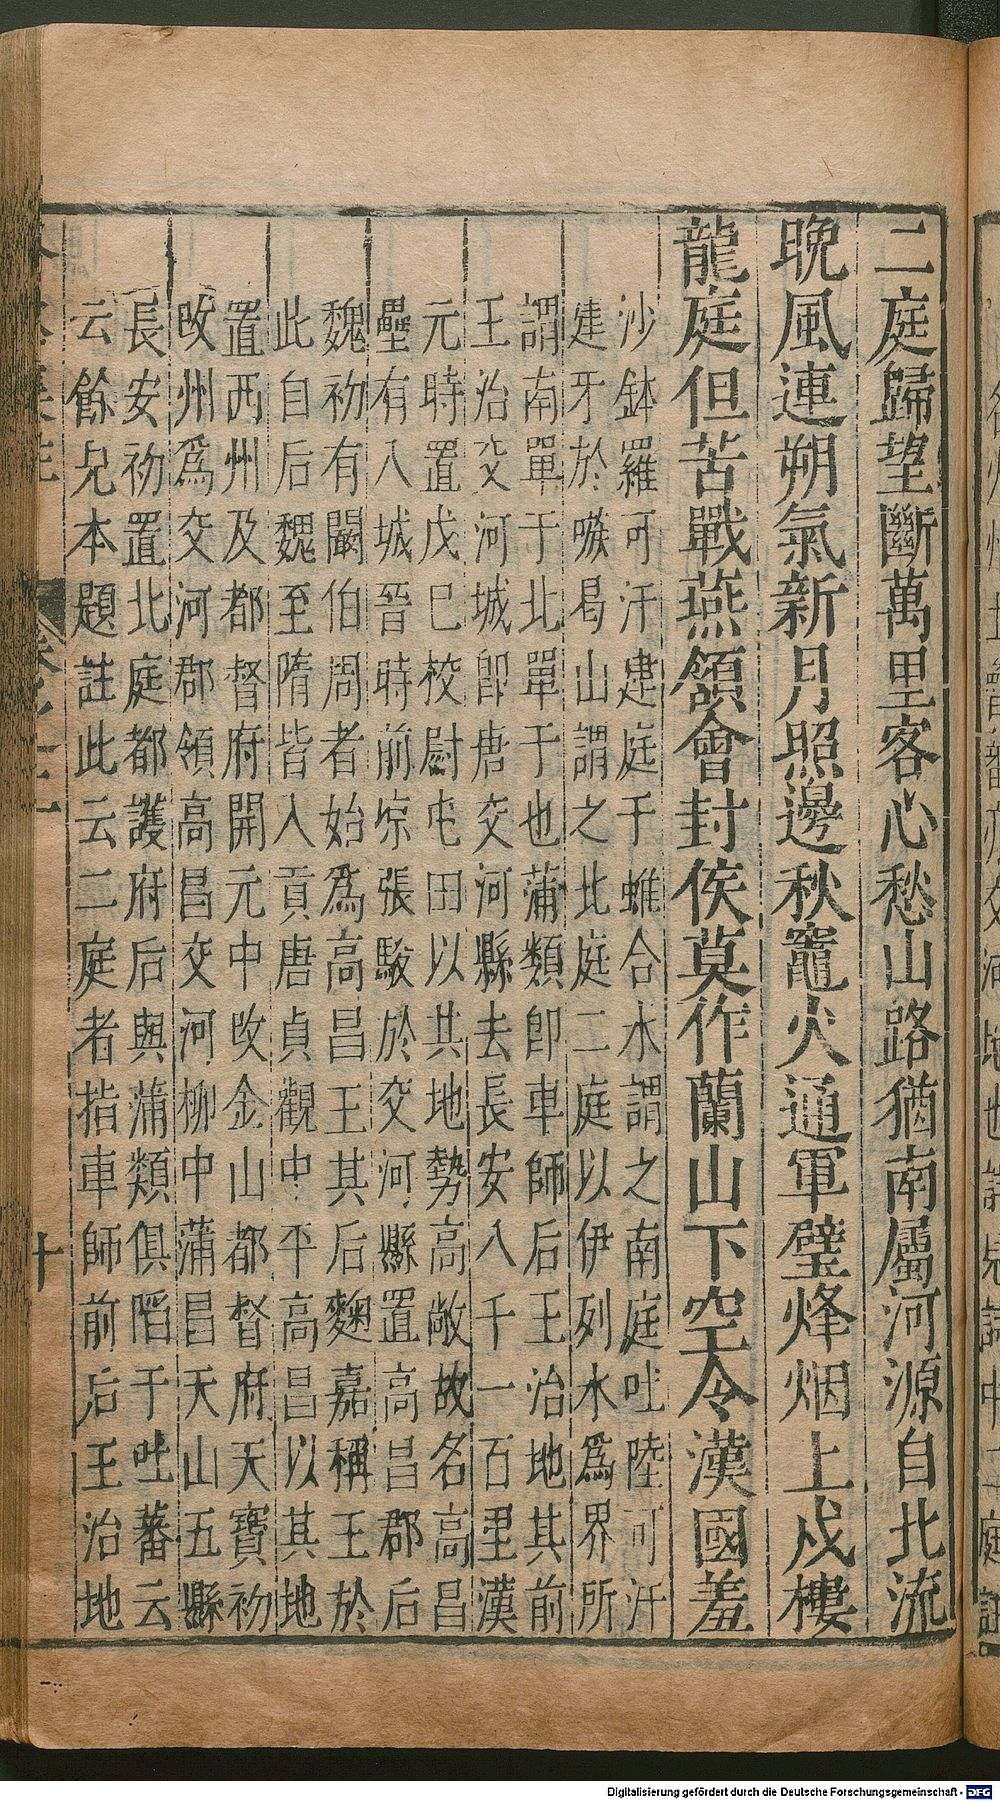 二庭歸望斷萬里客心愁山路猶南屬河源自北流
晚風連朔氣新月照邊秋竈火通軍壁烽烟上戍樓
龍庭但苦戰燕頷會封侯莫作蘭山下空令漢國羞
沙鉢羅可汗建庭千蜼合水謂之南庭吐陸可汗
建牙於嗾曷山謂之北庭二庭以伊列水爲界所
謂南單于北單于也蒲類即車師后王治地其前
王治交河城即唐交河縣去長安八千一百里漢
元時置戊巳校尉屯田以其地勢高敞故名高昌
壘有入城晉時前凉張駿於交河縣置高昌郡后
魏初有闞伯周者始爲高昌王其后麴嘉稱王於
此自后魏至隋皆入貢唐貞觀中平高昌以其地
置西州及都督府開元中改金山都督府天寶初
改州爲交河郡領高昌交河柳中蒲昌天山五縣
長安初置北庭都護府后與蒲類俱陷于吐蕃云
云餘見本題註此云二庭者指車師前后王治地
十
Digitalisierung gefördert durch die Deutsche Forschungsgemeinschaft - DFG